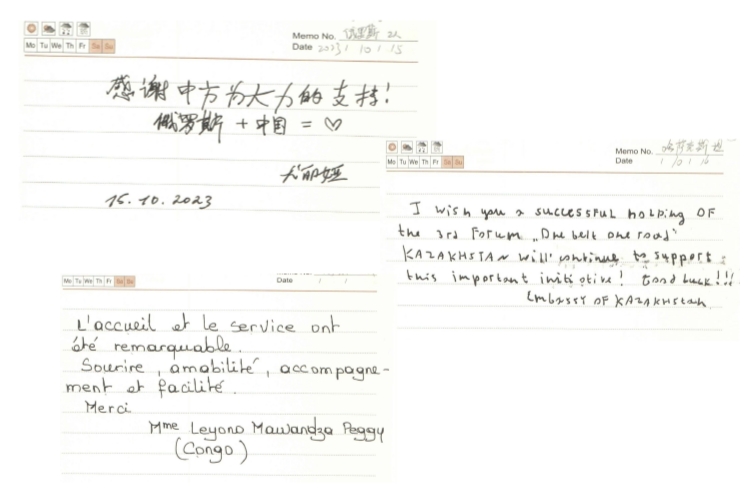 Memo No. 俄罗斯 2人
Mo Tu We Th Fr Sa Su
Date 2023 / 10 / 15
感谢中方为大力的支持!
俄罗斯 + 中国 = ♡
尤丽娅
15.10.2023
Memo No. 哈萨克斯坦
Mo Tu We Th Fr Sa Su
Date / 0 / 16
I wish you a successful holping OF
the 3rd Forum „One belt one road"
KAZAKHSTAN will continue to support
this important initiative! Good luck!!!
Embassy OF KAZAKHstan
Mo Tu We Th Fr Sa Su
Date / /
L'accueil et le service ont
été remarquable.
Sourire, amabilité, accompagne-
ment et facilité.
Merci
Mme Leyono Mawandza Peggy
(Congo)